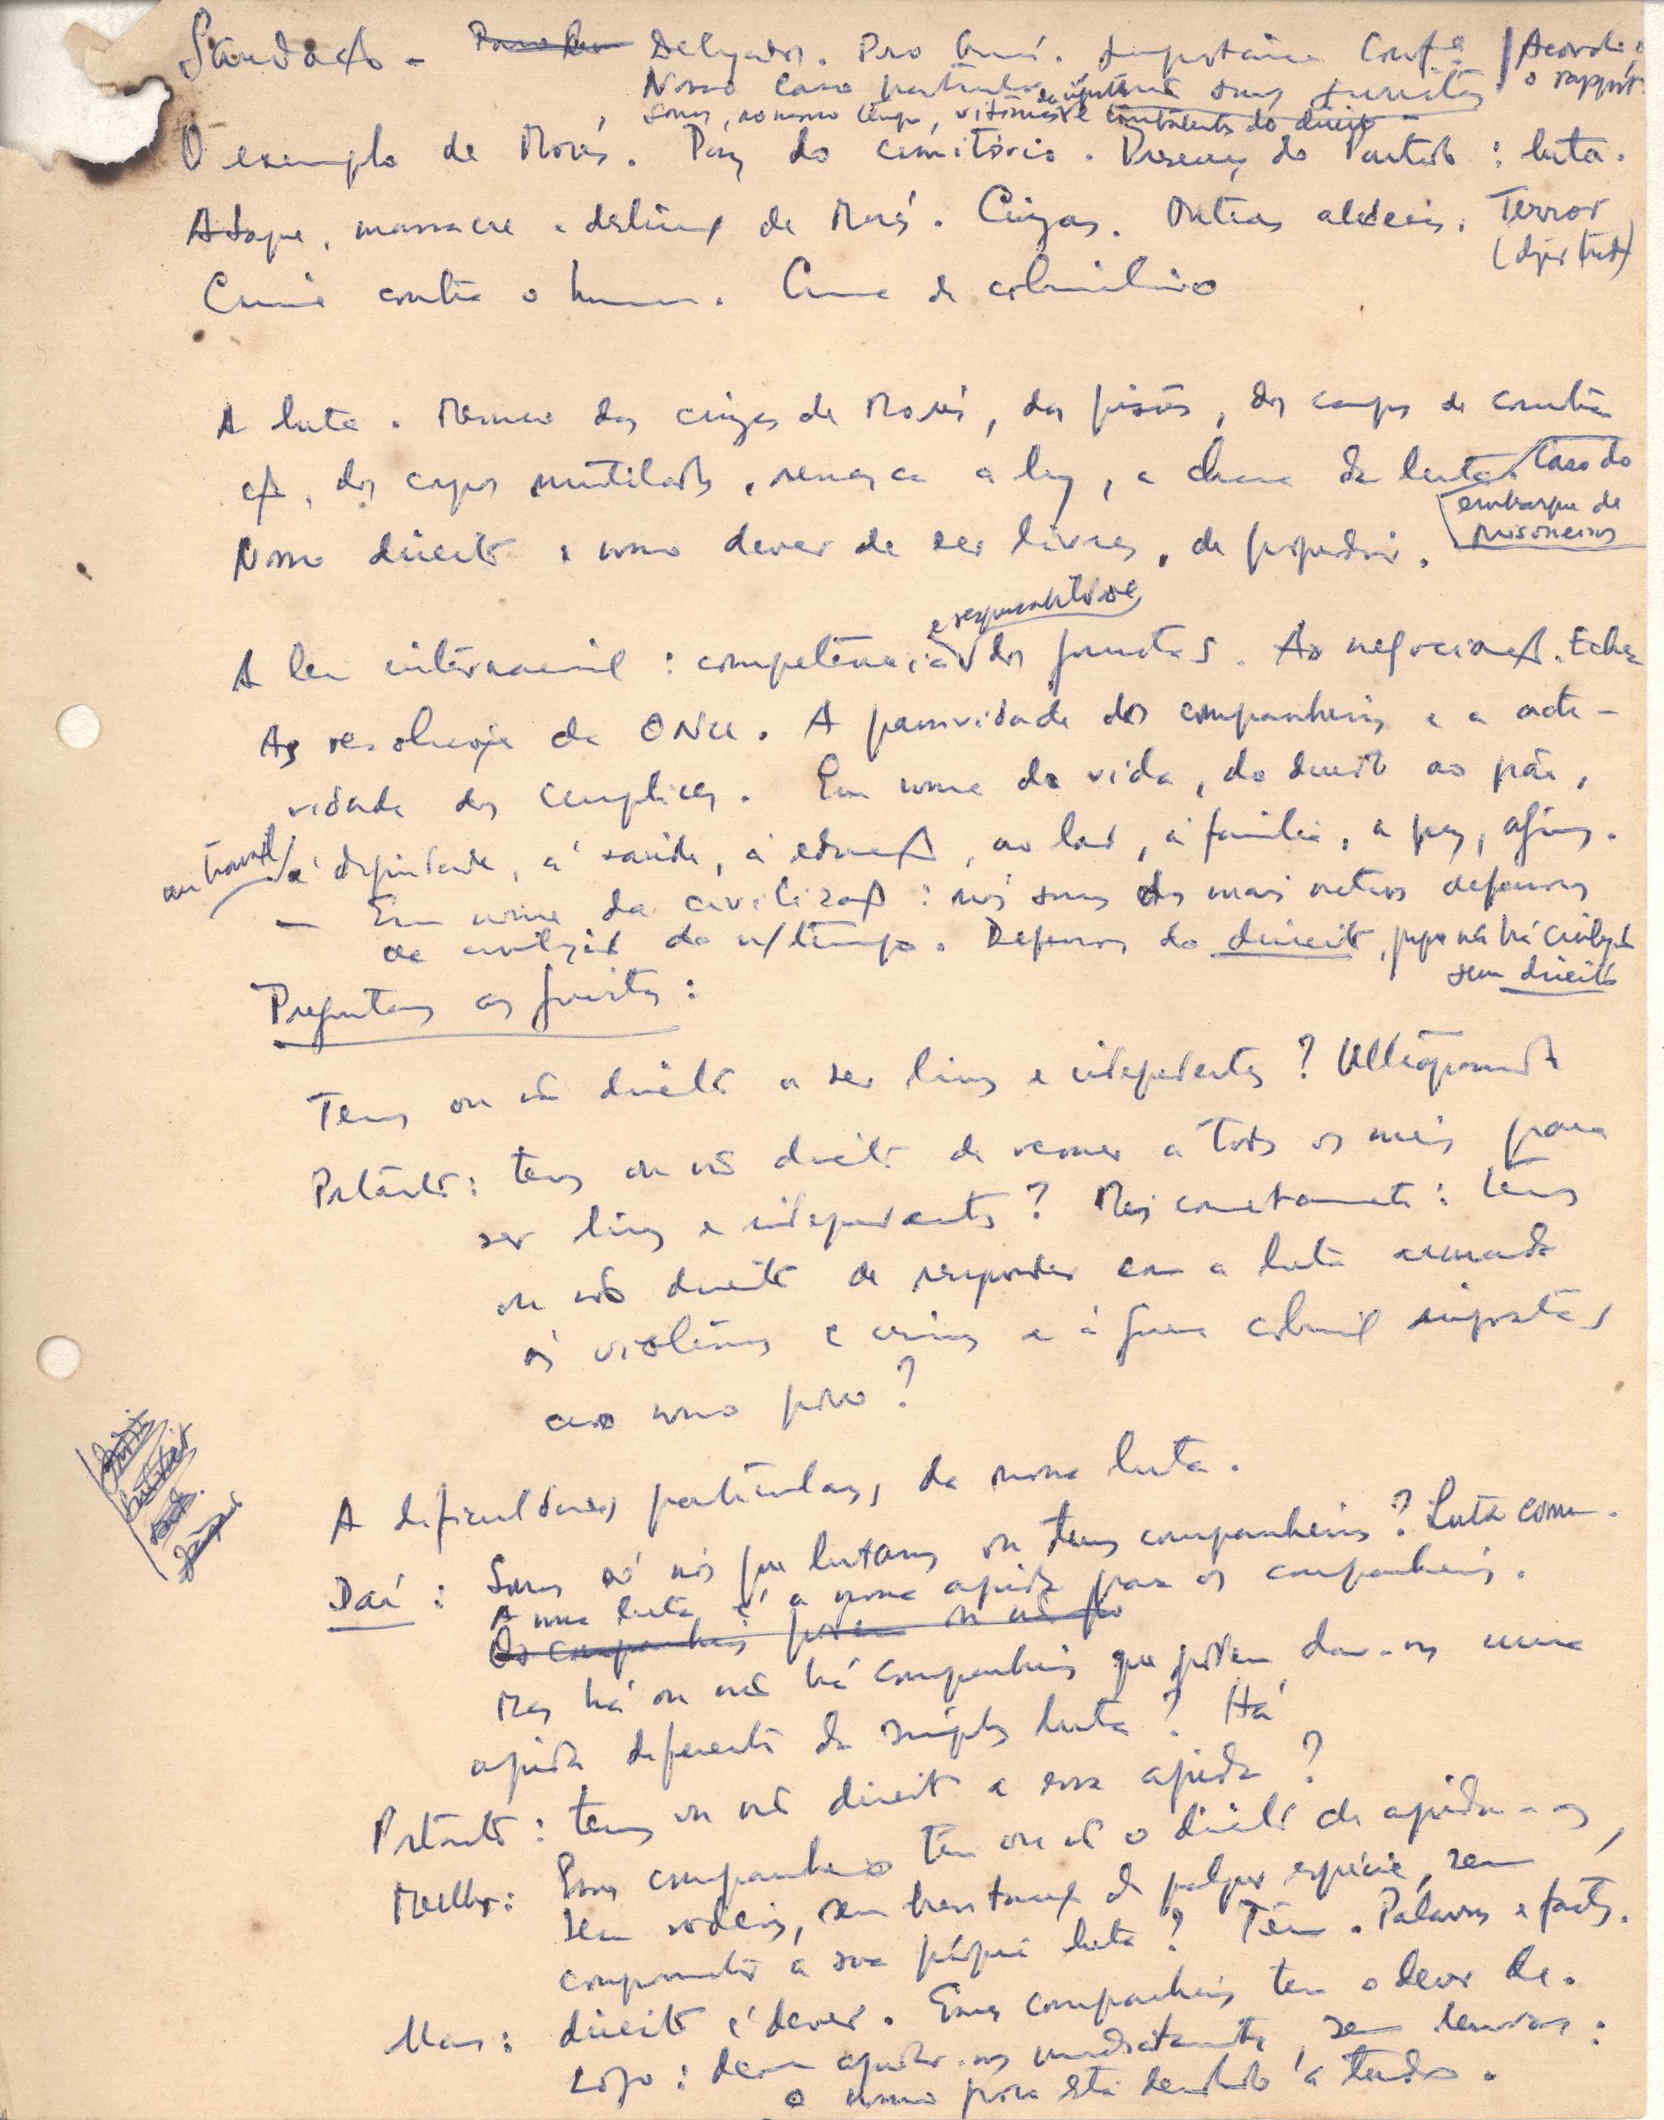 Saudação - Delegados. Povo Guiné. Importância Confª / Acordo c/ o rapport
Nosso caso particular: não somos juristas
somos, ao mesmo tempo, vítimas e combatentes do direito -
O exemplo de Morés. Paz do cemitério. Presença do Partido: luta.
Ataque, massacre e destruição de Morés. Cinzas. Outras aldeias. Terror
Crime contra o homem. Crime de colonialismo
A luta. Mesmo das cinzas de Morés, das prisões, dos campos de concentra
ção, dos corpos mutilados, renasce a luz, a chama da luta. Caso do
embarque de
prisioneiros
Nosso direito e nosso dever de ser livres, de progredir.
e responsabilidade
A lei internacional: competência dos juristas. As negociações.
As resoluções da ONU. A passividade dos companheiros e a acti-
vidade dos cúmplices. Em nome da vida, do direito ao pão,
ao trabalho
à dignidade, à saúde, à educação, ao lar, à família, à paz, agimos.
- Em nome da civilização: nós somos dos mais activos defensores
da civilização do n/tempo. Defensores do direito, porque não há civilização
sem direito
Preguntamos aos juristas:
Temos ou não direito a ser livres e independentes? Ultrapassado
Portanto: temos ou não direito de recorrer a todos os meios para
ser livres e independentes? Mais concretamente: temos
ou não direito de responder com a luta armada
às violências e crimes e à guerra colonial impostas
ao nosso povo?
A dificuldades particulares da nossa luta.
Daí: Somos só nós que lutamos ou temos companheiros? Luta comum.
A nossa luta é a nossa ajuda para os companheiros.
Os companheiros podem ou não
Mas há ou não há companheiros que podem dar-nos uma
ajuda diferente da simples luta? Há
Portanto: temos ou não direito a essa ajuda?
Melhor: Esses companheiros têm ou não o direito de ajudar-nos,
sem rodeios, sem hesitações de qualquer espécie, sem
comprometer a sua própria luta? Têm. Palavras e factos.
Mas: direito é dever. Esses companheiros têm o dever de.
Logo: devem ajudar-nos imediatamente, sem demoras:
o nosso povo está decidido a tudo.